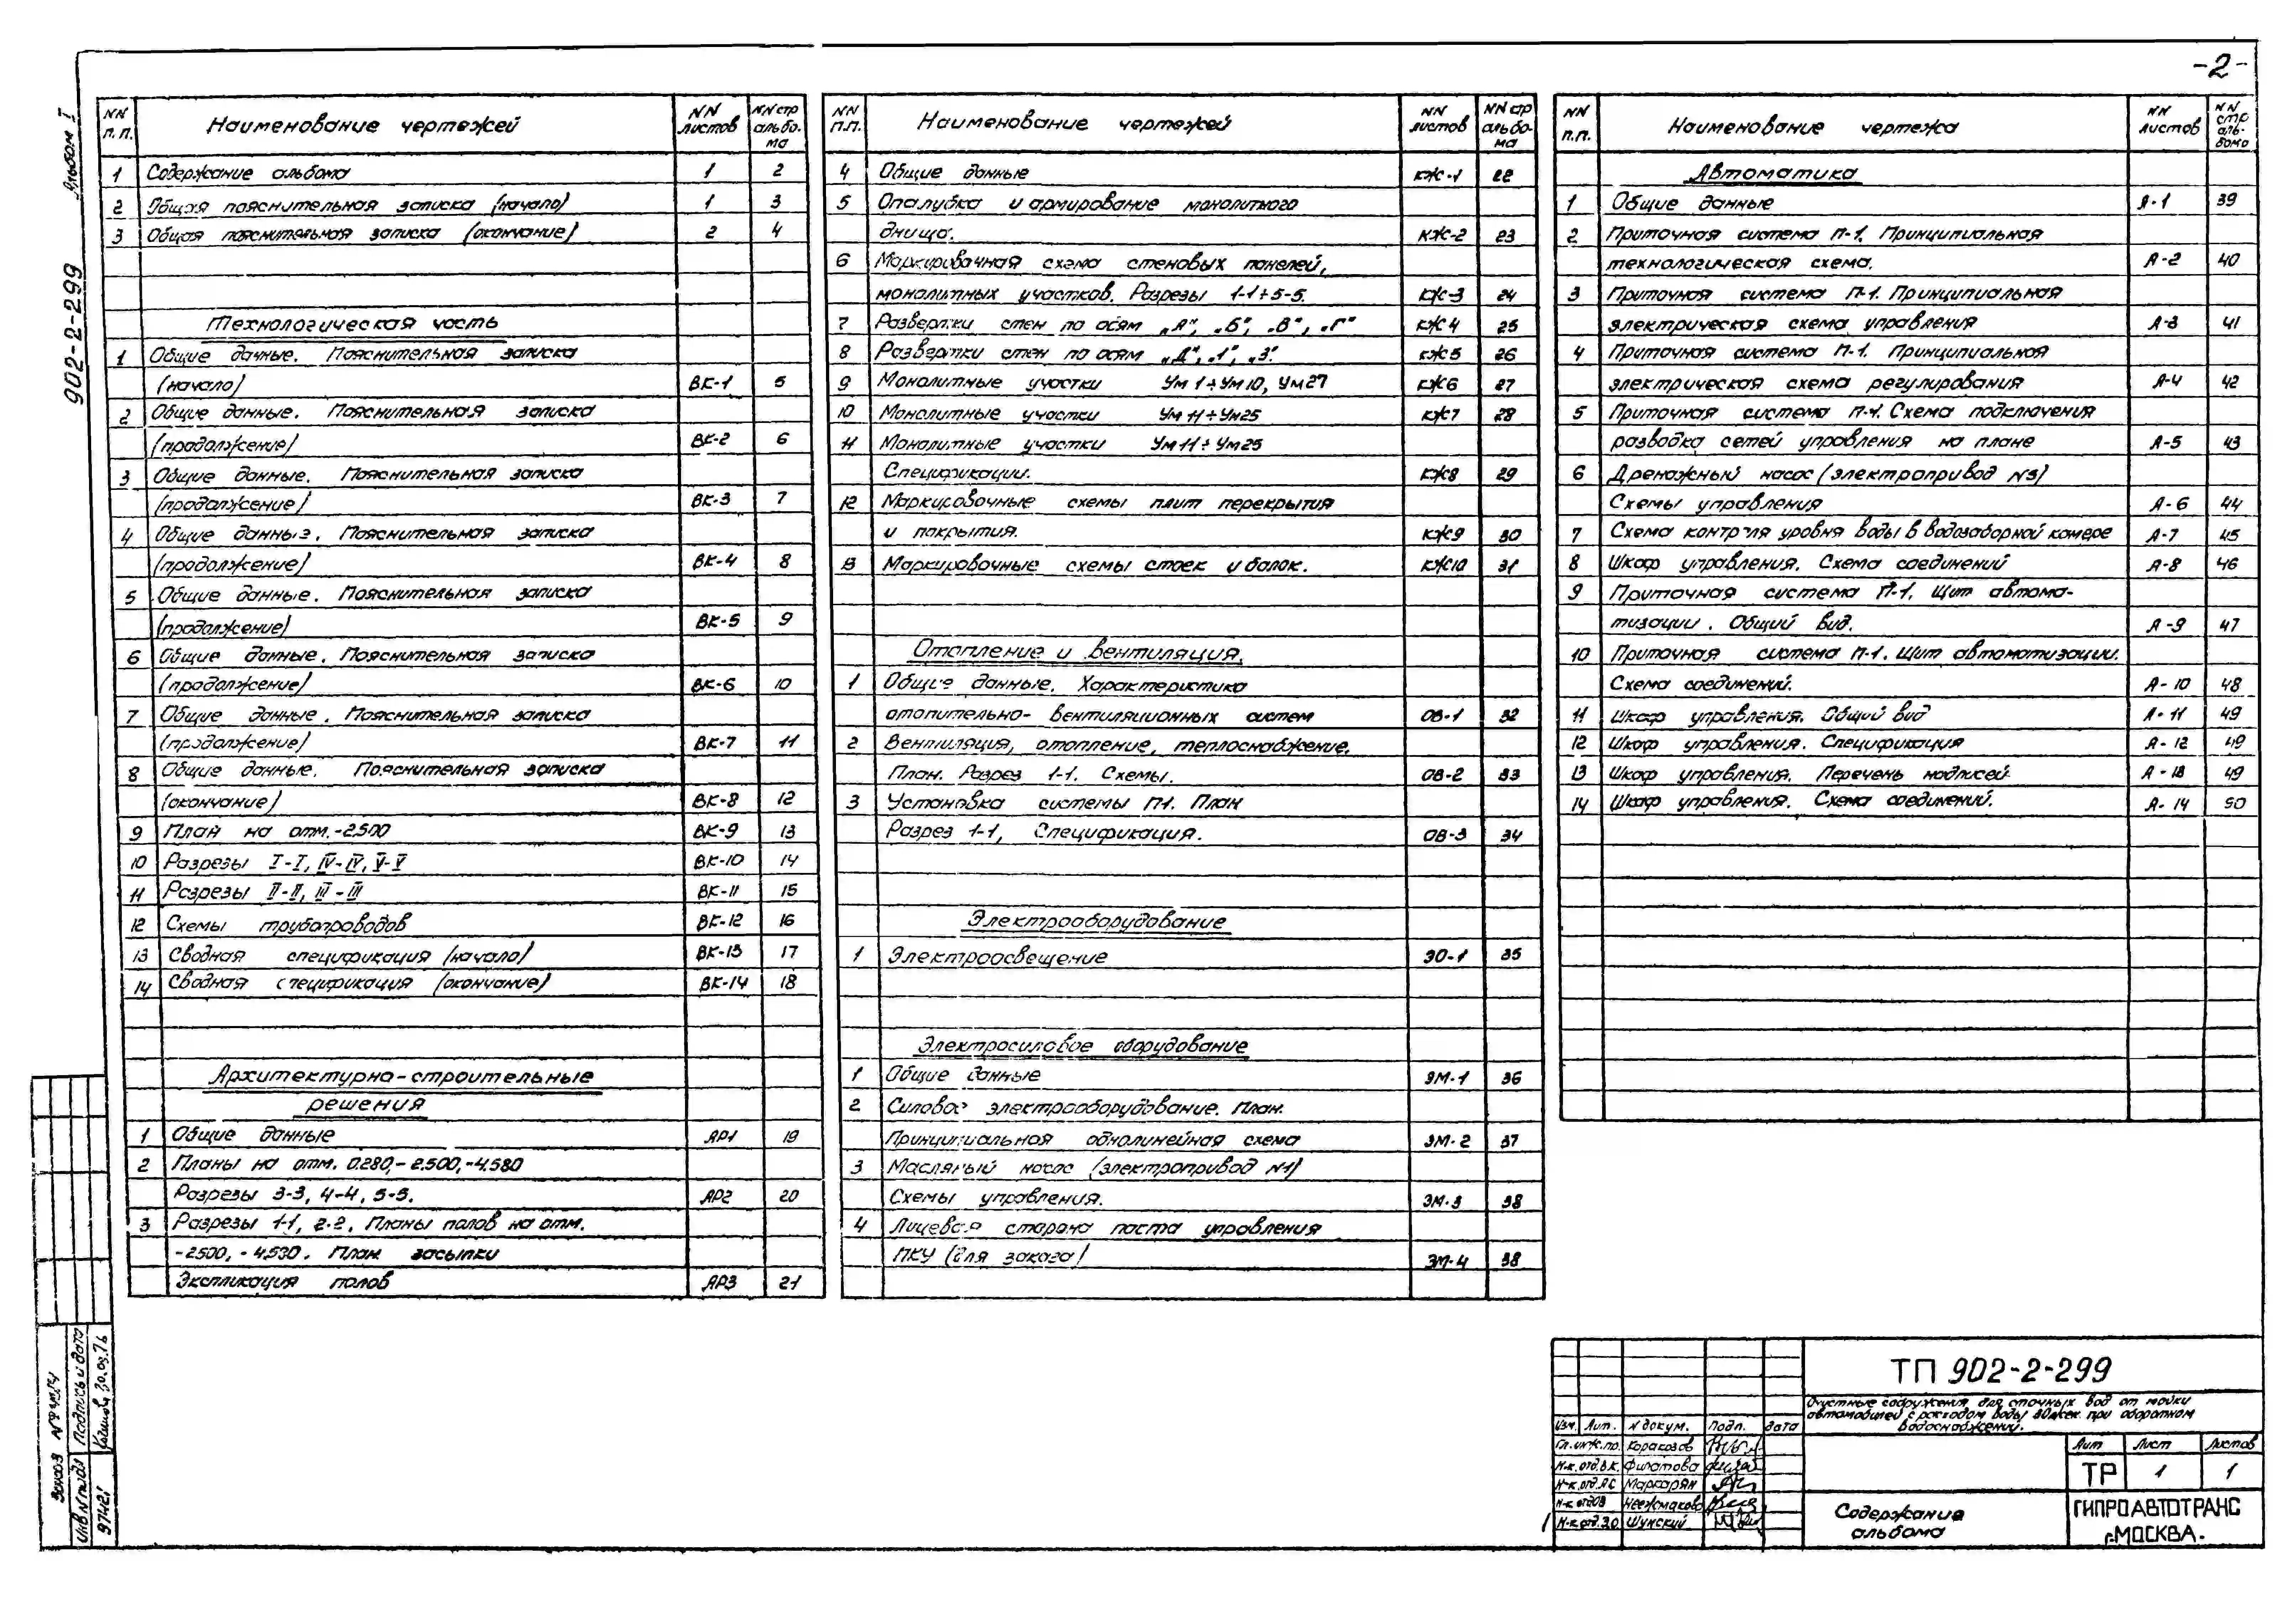 -2-
Альбом I
902-2-299
NN п.п. Наименование чертежей NN листов NN стр альбо- ма
1 Содержание альбома 1 2
2 Общая пояснительная записка (начало) 1 3
3 Общая пояснительная записка (окончание) 2 4
Технологическая часть
1 Общие данные. Пояснительная записка
(начало) ВК-1 5
2 Общие данные. Пояснительная записка
(продолжение) ВК-2 6
3 Общие данные. Пояснительная записка
(продолжение) ВК-3 7
4 Общие данные. Пояснительная записка
(продолжение) ВК-4 8
5 Общие данные. Пояснительная записка
(продолжение) ВК-5 9
6 Общие данные. Пояснительная записка
(продолжение) ВК-6 10
7 Общие данные. Пояснительная записка
(продолжение) ВК-7 11
8 Общие данные. Пояснительная записка
(окончание) ВК-8 12
9 План на отм.-2.500 ВК-9 13
10 Разрезы I-I, IV-IV, V-V ВК-10 14
11 Розрезы II-II, III-III ВК-11 15
12 Схемы трубопроводов ВК-12 16
13 Сводная спецификация (начало) ВК-13 17
14 Сводная спецификация (окончание) ВК-14 18
Архитектурно-строительные
решения
1 Общие данные АР1 19
2 Планы на отм. 0.280,-2.500,-4.580
Разрезы 3-3, 4-4, 5-5. АР2 20
3 Разрезы 1-1, 2-2. Планы полов на отм.
-2.500, -4.530. План засыпки
Экспликация полов АР3 21
NN п.п. Наименование чертежей NN листов NN стр альбо- ма
4 Общие данные КЖ-1 22
5 Опалубка и армирование монолитного
днища. КЖ-2 23
6 Маркировачная схема стеновых панелей,
монолитных участков. Разрезы 1-1÷5-5. КЖ-3 24
7 Развертки стен по осям „А", „Б", „В", „Г" КЖ4 25
8 Развертки стен по осям „Д", „1", „3". КЖ5 26
9 Монолитные участки Ум1÷Ум10, Ум27 КЖ6 27
10 Монолитные участки Ум11÷Ум25 КЖ7 28
11 Монолитные участки Ум11÷Ум25
Спецификации. КЖ8 29
12 Маркировочные схемы плит перекрытия
и покрытия. КЖ9 30
13 Маркировочные схемы стоек и балок. КЖ10 31
Отопление и вентиляция.
1 Общие данные. Характеристика
отопительно-вентиляционных систем ОВ-1 32
2 Вентиляция, отопление, теплоснабжение.
План. Разрез 1-1. Схемы. ОВ-2 33
3 Установка системы П1. План
Разрез 1-1, Спецификация. ОВ-3 34
Электрооборудование
1 Электроосвещение ЭО-1 35
Электросиловое оборудование
1 Общие данные ЭМ-1 36
2 Силовое электрооборудование. План.
Принципиальная однолинейная схема ЭМ-2 37
3 Масляный насос (электропривод N1)
Схемы управления. ЭМ-3 38
4 Лицевая сторона поста управления
ПКУ (для заказа) ЭМ-4 38
NN п.п. Наименование чертежа NN листов NN стр аль- бома
Автоматика
1 Общие данные А-1 39
2 Приточная система П-1. Принципиальная
технологическая схема. А-2 40
3 Приточная система П-1. Принципиальная
электрическая схема управления А-3 41
4 Приточная система П-1. Принципиальная
электрическая схема регулирования А-4 42
5 Приточная система П-1. Схема подключения
разводка сетей управления на плане А-5 43
6 Дренажный насос (электропривод N3)
Схемы управления А-6 44
7 Схема контроля уровня воды в водозаборной камере А-7 45
8 Шкаф управления. Схема соединений А-8 46
9 Приточная система П-1. Щит автома-
тизации. Общий вид. А-9 47
10 Приточная система П-1. Щит автоматизации.
Схема соединений. А-10 48
11 Шкаф управления. Общий вид А-11 49
12 Шкаф управления. Спецификация А-12 49
13 Шкаф управления. Перечень надписей. А-13 49
14 Шкаф управления. Схема соединений. А-14 50
ТП 902-2-299
Очистные сооружения для сточных вод от мойки
автомобилей с расходом воды 30л/сек при оборотном
водоснабжении.
Изм. Лит. N докум. Подп. Дата
Гл.инж.пр. Каракозов
Н-к.отд.ВК. Филатова
Н-к.отд.АС Маркарян
Н-к отдОВ Неежмаков
Н-к отд.ЭО Шумский
Лит Лист Листов
ТР 1 1
Содержание
альбома
ГИПРОАВТОТРАНС
г.МОСКВА.
Заказ
Инв.N подл Подпись и дата
97421